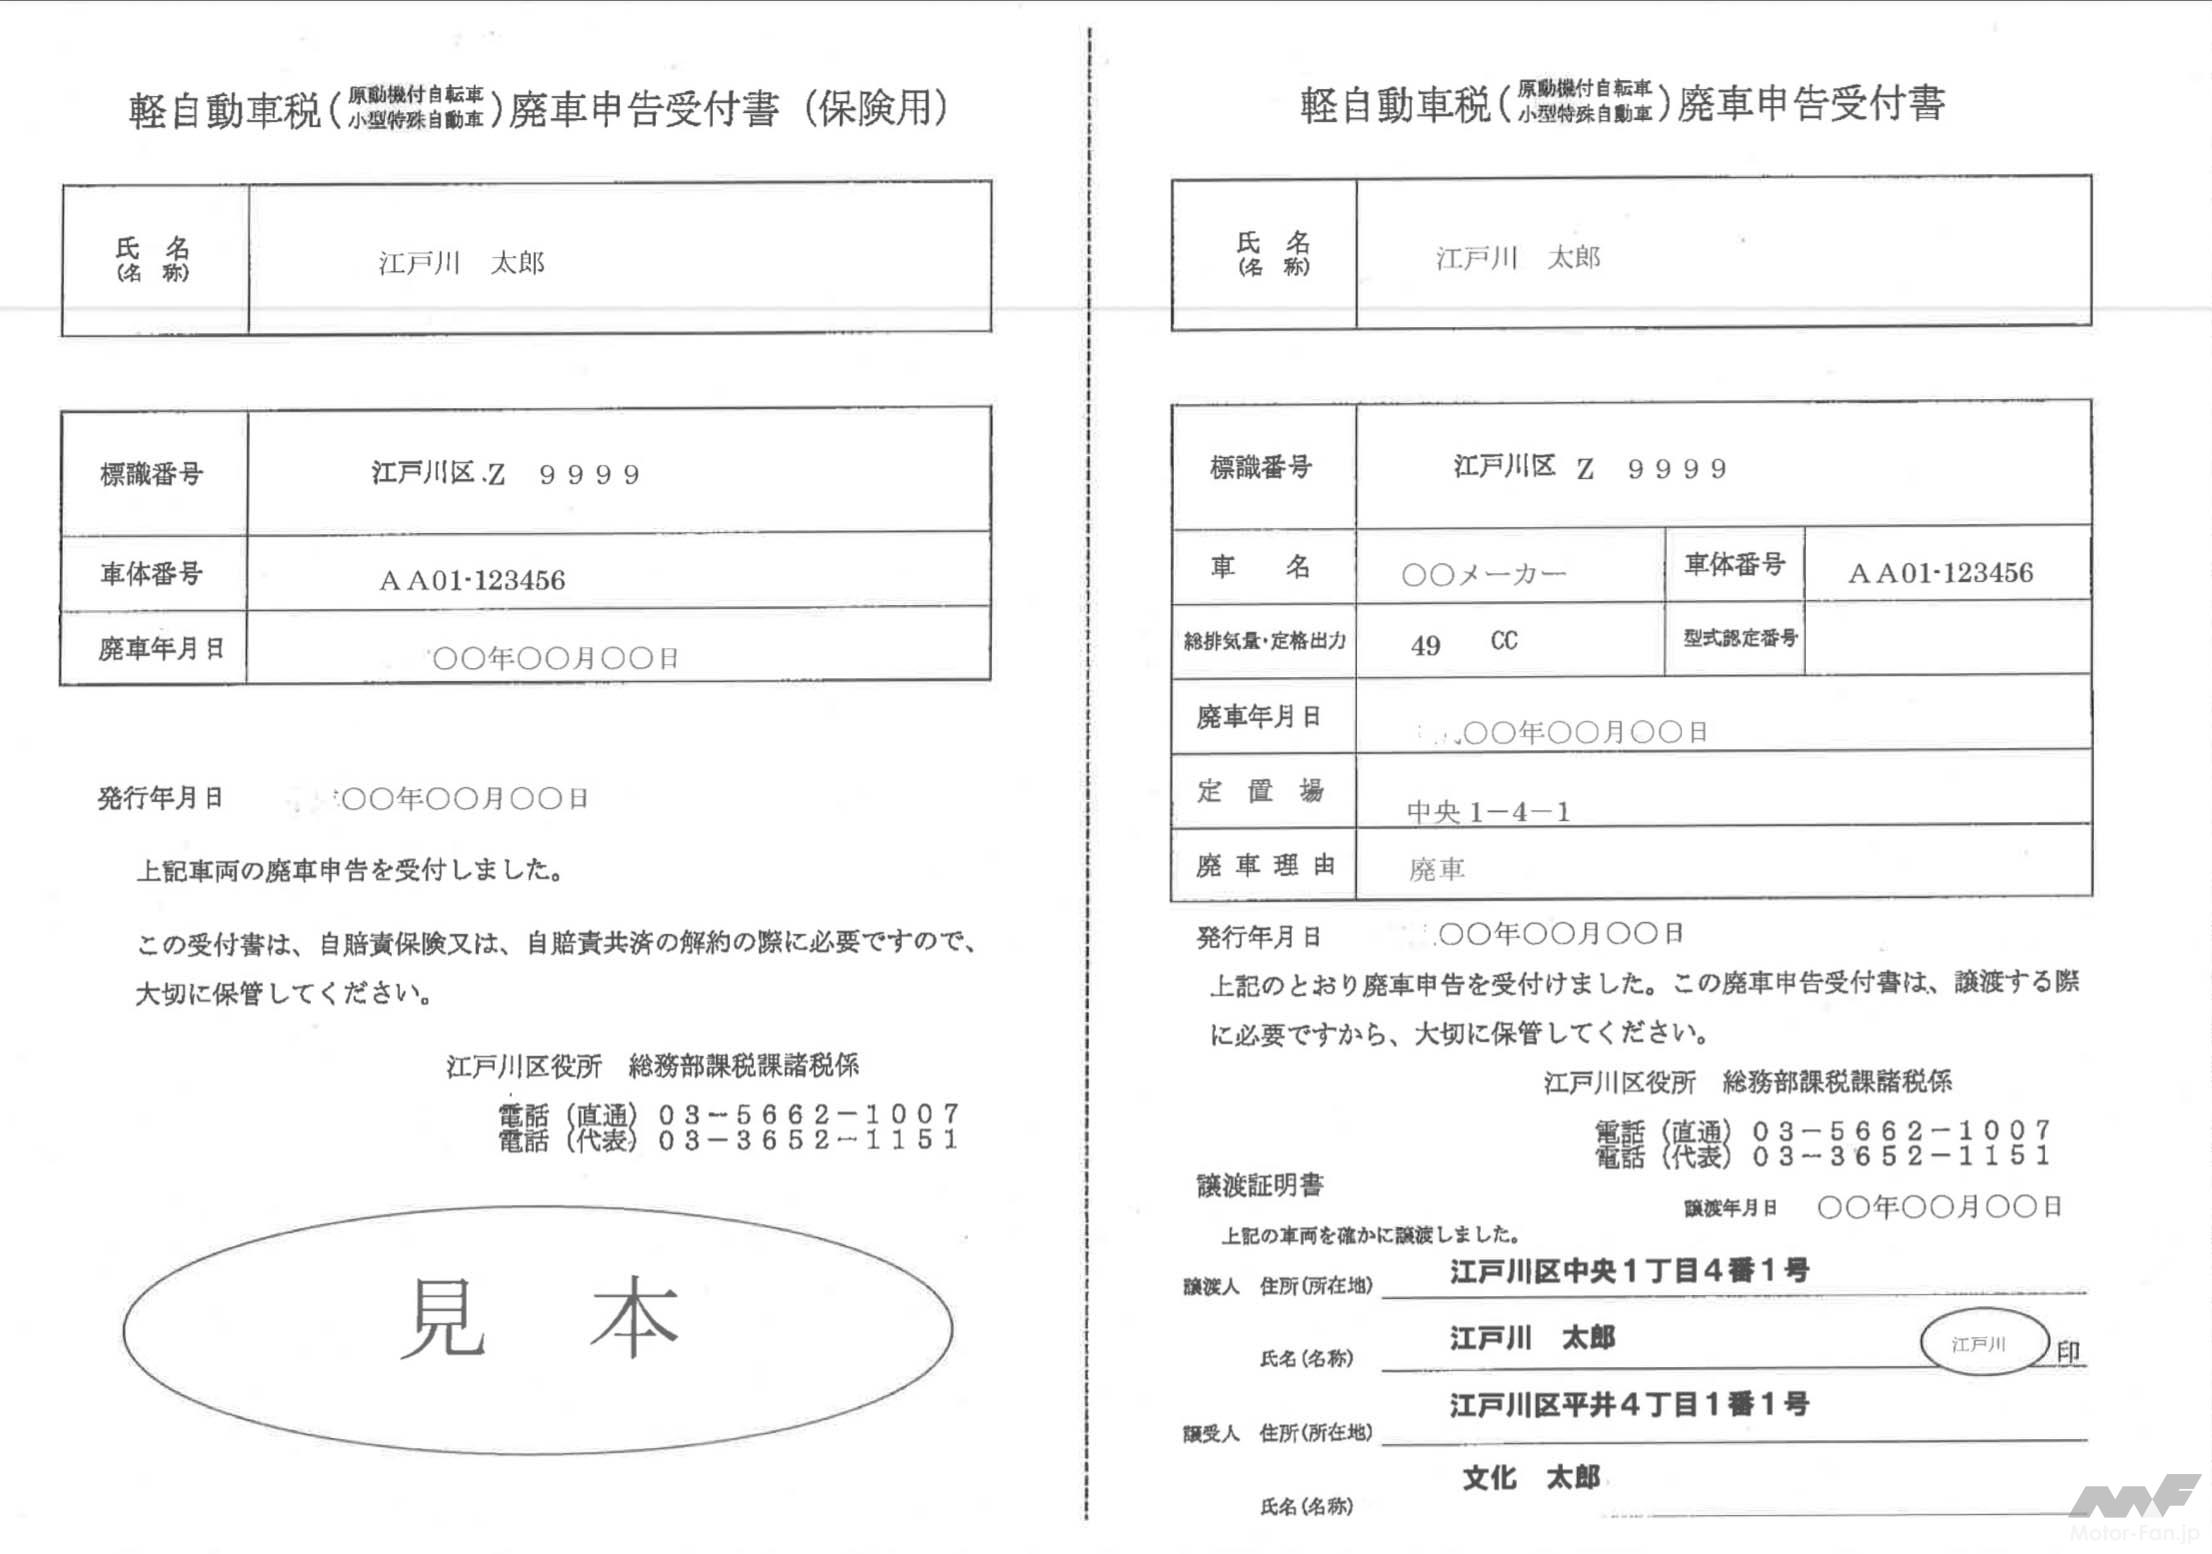 軽自動車税(原動機付自転車 小型特殊自動車)廃車申告受付書(保険用)
氏 名 江戸川 太郎
(名 称)
標識番号 江戸川区 Z 9999
車体番号 AA01-123456
廃車年月日 〇〇年〇〇月〇〇日
発行年月日 〇〇年〇〇月〇〇日
上記車両の廃車申告を受付しました。
この受付書は、自賠責保険又は、自賠責共済の解約の際に必要ですので、
大切に保管してください。
江戸川区役所 総務部課税課諸税係
電話(直通)03-5662-1007
電話(代表)03-3652-1151
見 本
軽自動車税(原動機付自転車 小型特殊自動車)廃車申告受付書
氏 名 江戸川 太郎
(名 称)
標識番号 江戸川区 Z 9999
車 名 〇〇メーカー 車体番号 AA01-123456
総排気量・定格出力 49 CC 型式認定番号
廃車年月日 〇〇年〇〇月〇〇日
定 置 場 中央1-4-1
廃 車 理 由 廃車
発行年月日 〇〇年〇〇月〇〇日
上記のとおり廃車申告を受付けました。この廃車申告受付書は、譲渡する際
に必要ですから、大切に保管してください。
江戸川区役所 総務部課税課諸税係
電話(直通)03-5662-1007
電話(代表)03-3652-1151
譲渡証明書
譲渡年月日 〇〇年〇〇月〇〇日
上記の車両を確かに譲渡しました。
譲渡人 住所(所在地) 江戸川区中央1丁目4番1号
氏名(名称) 江戸川 太郎 江戸川 印
譲受人 住所(所在地) 江戸川区平井4丁目1番1号
氏名(名称) 文化 太郎
Motor-Fan.jp